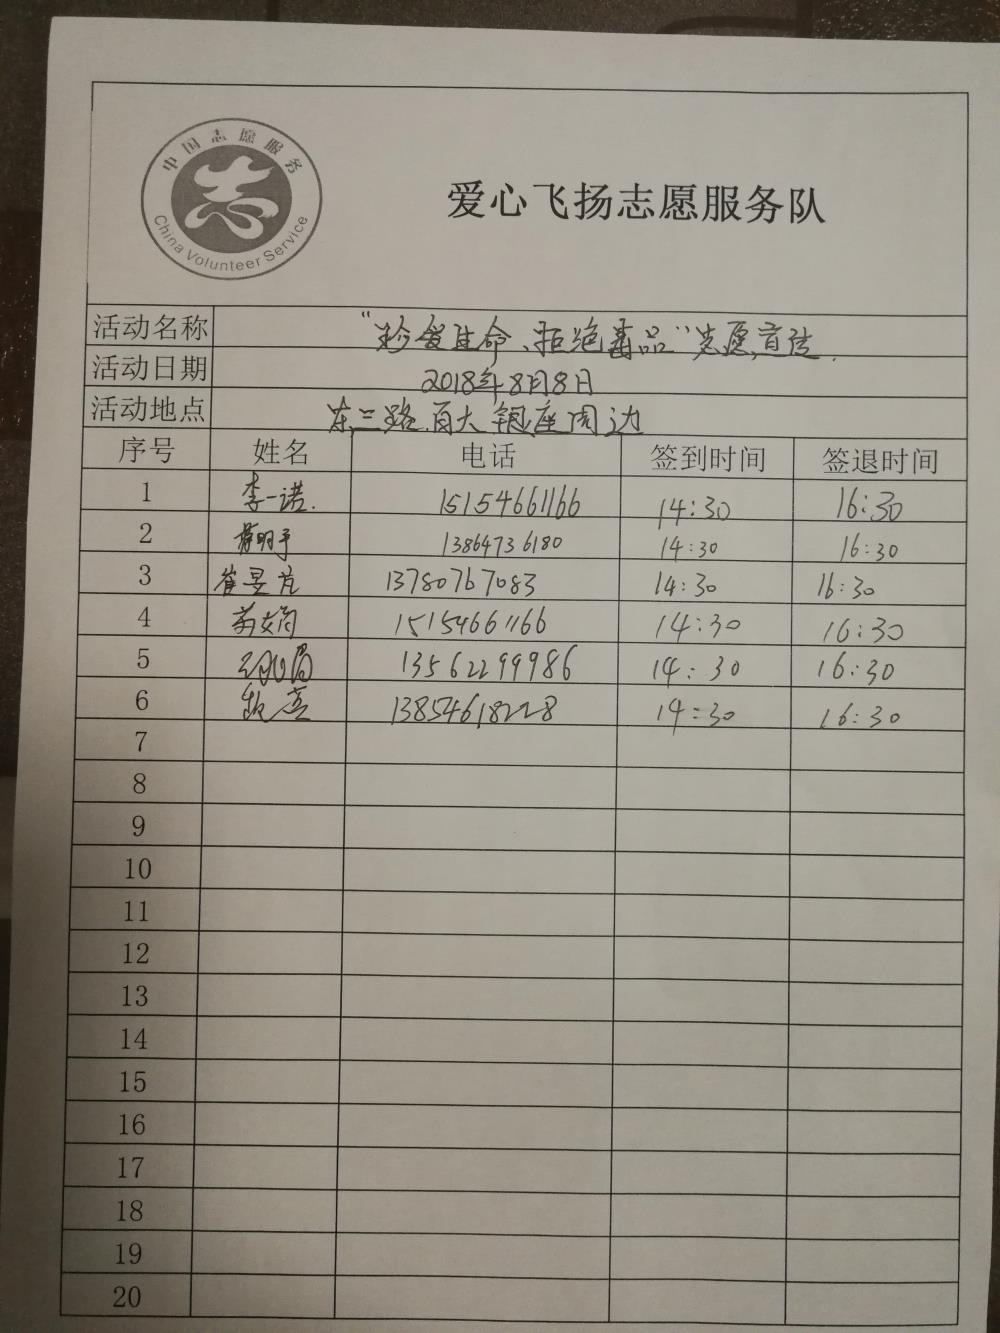 中国志愿服务
China Volunteer Service
爱心飞扬志愿服务队
活动名称 "珍爱生命、拒绝毒品"志愿宣传.
活动日期 2018年8月8日
活动地点 东三路.百大银座周边
序号 姓名 电话 签到时间 签退时间
1 李一诺. 15154661166 14:30 16:30
2 13864736180 14:30 16:30
3 崔昱 13780767083 14:30 16:30
4 15154661166 14:30 16:30
5 13562299986 14:30 16:30
6 13854618228 14:30 16:30
7
8
9
10
11
12
13
14
15
16
17
18
19
20